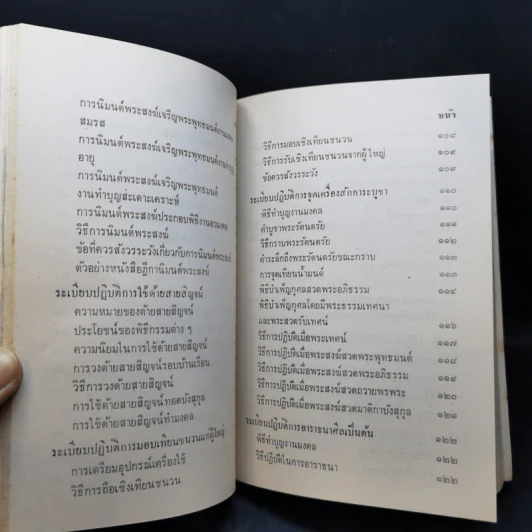 การนิมนต์พระสงฆ์เจริญพระพุทธมนต์งานมงคล
สมรส
การนิมนต์พระสงฆ์เจริญพระพุทธมนต์งานทำบุญ
อายุ
การนิมนต์พระสงฆ์เจริญพระพุทธมนต์
งานทำบุญสะเดาะเคราะห์
การนิมนต์พระสงฆ์ประกอบพิธีงานอวมงคล
วิธีการนิมนต์พระสงฆ์
ข้อที่ควรสังวรระวังเกี่ยวกับการนิมนต์พระสงฆ์
ตัวอย่างหนังสือฎีกานิมนต์พระสงฆ์
ระเบียบปฏิบัติการใช้ด้ายสายสิญจน์
ความหมายของด้ายสายสิญจน์
ประโยชน์ของพิธีกรรมต่าง ๆ
ความนิยมในการใช้ด้ายสายสิญจน์
การวงด้ายสายสิญจน์รอบบ้านเรือน
วิธีการวงด้ายสายสิญจน์
การใช้ด้ายสายสิญจน์ทอดบังสุกุล
การใช้ด้ายสายสิญจน์ทำมงคล
ระเบียบปฏิบัติการมอบเทียนชนวนแก่ผู้ใหญ่
การเตรียมอุปกรณ์เครื่องใช้
วิธีการถือเชิงเทียนชนวน
หน้า
วิธีการมอบเชิงเทียนชนวน ๑๐๘
วิธีการรับเชิงเทียนชนวนจากผู้ใหญ่ ๑๐๙
ข้อควรสังวรระวัง ๑๐๙
ระเบียบปฏิบัติการจุดเครื่องสักการะบูชา ๑๑๐
พิธีทำบุญงานมงคล ๑๑๐
คำบูชาพระรัตนตรัย ๑๑๑
วิธีกราบพระรัตนตรัย ๑๑๒
คำระลึกถึงพระรัตนตรัยขณะกราบ ๑๑๓
การจุดเทียนน้ำมนต์ ๑๑๓
พิธีบำเพ็ญกุศลสวดพระอภิธรรม ๑๑๔
พิธีบำเพ็ญกุศลโดยมีพระธรรมเทศนา
และพระสวดรับเทศน์ ๑๑๖
วิธีการปฏิบัติเมื่อพระเทศน์ ๑๑๗
วิธีการปฏิบัติเมื่อพระสงฆ์สวดพระพุทธมนต์ ๑๑๘
วิธีการปฏิบัติเมื่อพระสงฆ์สวดพระอภิธรรม ๑๑๙
วิธีการปฏิบัติเมื่อพระสงฆ์สวดถวายพรพระ ๑๒๐
วิธีการปฏิบัติเมื่อพระสงฆ์สวดมาติกาบังสุกุล ๑๒๑
ระเบียบปฏิบัติการอาราธนาศีลเป็นต้น ๑๒๒
พิธีทำบุญงานมงคล ๑๒๒
วิธีปฏิบัติในการอาราธนา ๑๒๒